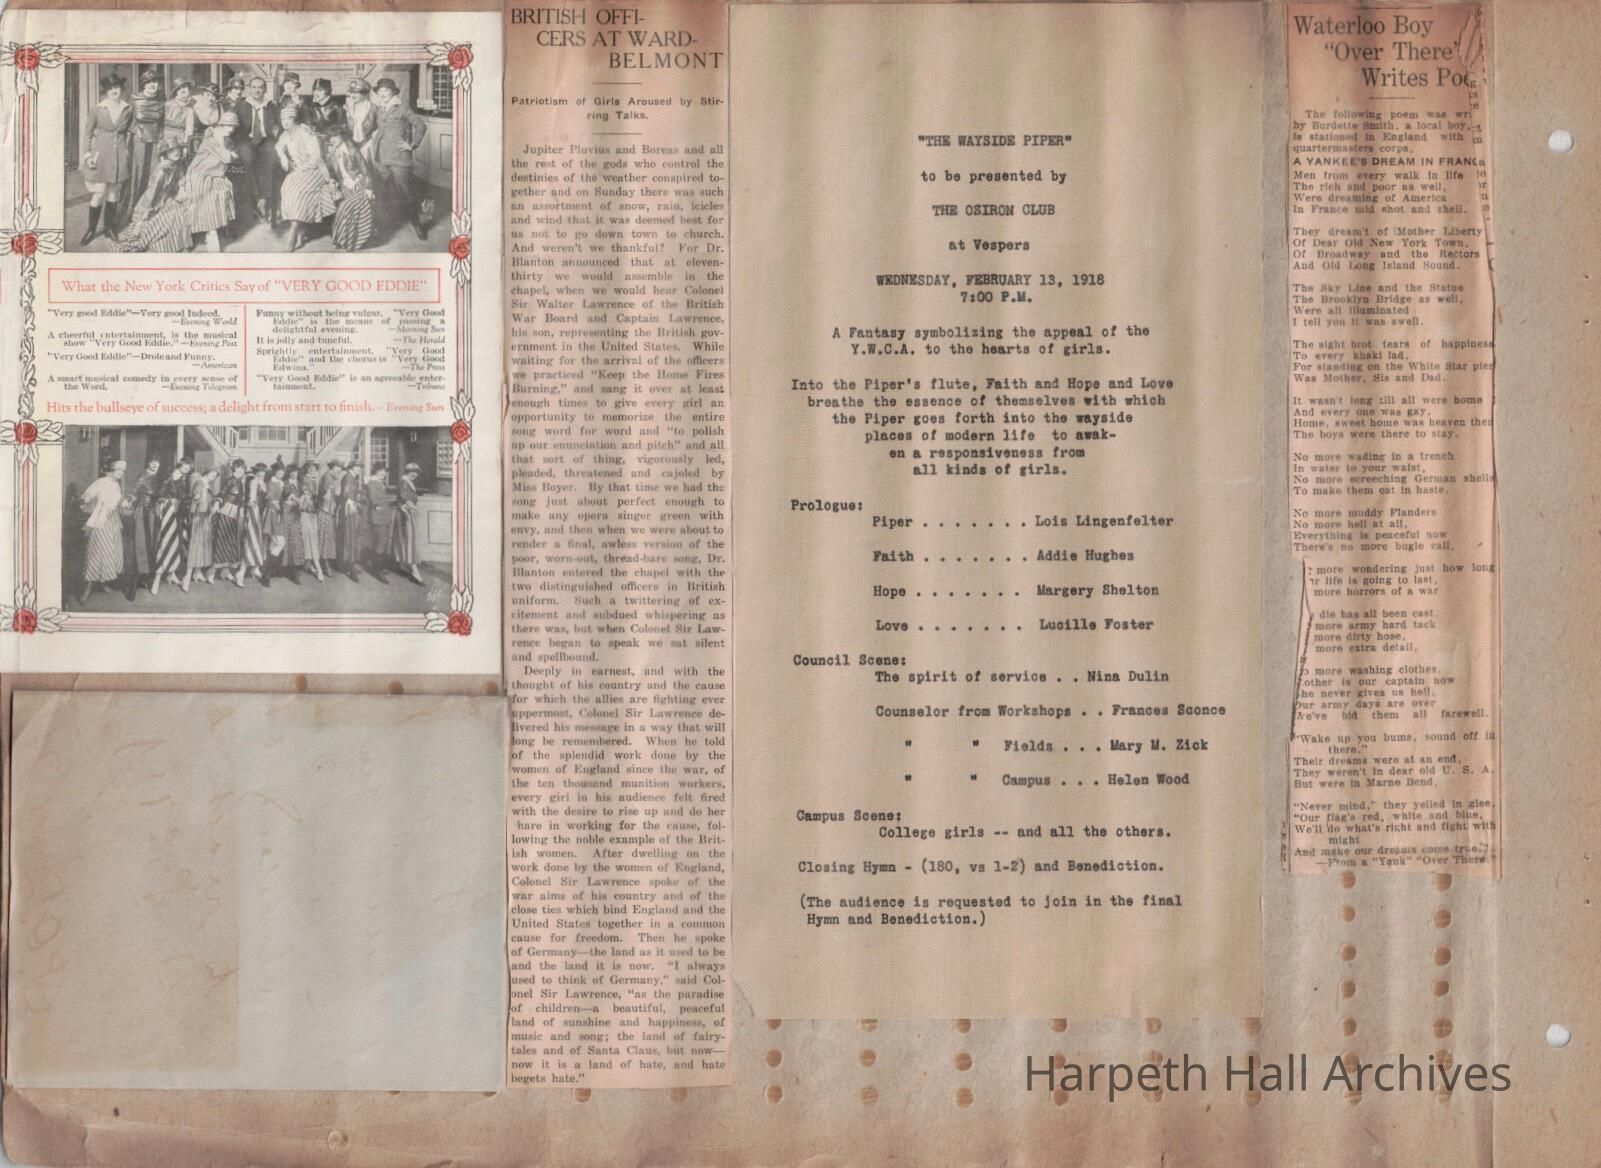 What the New York Critics Say of "VERY GOOD EDDIE"
"Very good Eddie"—Very good Indeed.
—Evening World
A cheerful entertainment, is the musical
show "Very Good Eddie." —Evening Post
"Very Good Eddie"—Drole and Funny.
—American
A smart musical comedy in every sense of
the Word. —Evening Telegram
Funny without being vulgar. "Very Good
Eddie" is the means of passing a
delightful evening. —Morning Sun
It is jolly and tuneful. —The Herald
Sprightly entertainment, "Very Good
Eddie" and the chorus is "Very Good
Edwina." —The Press
"Very Good Eddie" is an agreeable enter-
tainment. —Tribune
Hits the bullseye of success; a delight from start to finish. – Evening Sun
BRITISH OFFI-
CERS AT WARD-
BELMONT
Patriotism of Girls Aroused by Stir-
ring Talks.
Jupiter Pluvius and Boreas and all
the rest of the gods who control the
destinies of the weather conspired to-
gether and on Sunday there was such
an assortment of snow, rain, icicles
and wind that it was deemed best for
us not to go down town to church.
And weren't we thankful? For Dr.
Blanton announced that at eleven-
thirty we would assemble in the
chapel, when we would hear Colonel
Sir Walter Lawrence of the British
War Board and Captain Lawrence,
his son, representing the British gov-
ernment in the United States. While
waiting for the arrival of the officers
we practiced "Keep the Home Fires
Burning," and sang it over at least
enough times to give every girl an
opportunity to memorize the entire
song word for word and "to polish
up our enunciation and pitch" and all
that sort of thing, vigorously led,
pleaded, threatened and cajoled by
Miss Boyer. By that time we had the
song just about perfect enough to
make any opera singer green with
envy, and then when we were about to
render a final, awless version of the
poor, worn-out, thread-bare song, Dr.
Blanton entered the chapel with the
two distinguished officers in British
uniform. Such a twittering of ex-
citement and subdued whispering as
there was, but when Colonel Sir Law-
rence began to speak we sat silent
and spellbound.
Deeply in earnest, and with the
thought of his country and the cause
for which the allies are fighting ever
uppermost, Colonel Sir Lawrence de-
livered his message in a way that will
long be remembered. When he told
of the splendid work done by the
women of England since the war, of
the ten thousand munition workers,
every girl in his audience felt fired
with the desire to rise up and do her
hare in working for the cause, fol-
lowing the noble example of the Brit-
ish women. After dwelling on the
work done by the women of England,
Colonel Sir Lawrence spoke of the
war aims of his country and of the
close ties which bind England and the
United States together in a common
cause for freedom. Then he spoke
of Germany—the land as it used to be
and the land it is now. "I always
used to think of Germany," said Col-
onel Sir Lawrence, "as the paradise
of children—a beautiful, peaceful
land of sunshine and happiness, of
music and song; the land of fairy-
tales and of Santa Claus, but now—
now it is a land of hate, and hate
begets hate."
"THE WAYSIDE PIPER"
to be presented by
THE OSIRON CLUB
at Vespers
WEDNESDAY, FEBRUARY 13, 1918
7:00 P.M.
A Fantasy symbolizing the appeal of the
Y.W.C.A. to the hearts of girls.
Into the Piper's flute, Faith and Hope and Love
breathe the essence of themselves with which
the Piper goes forth into the wayside
places of modern life to awak-
en a responsiveness from
all kinds of girls.
Prologue:
Piper . . . . . . . Lois Lingenfelter
Faith . . . . . . . Addie Hughes
Hope . . . . . . . Margery Shelton
Love . . . . . . . Lucille Foster
Council Scene:
The spirit of service . . Nina Dulin
Counselor from Workshops . . Frances Sconce
" " Fields . . . Mary M. Zick
" " Campus . . . Helen Wood
Campus Scene:
College girls -- and all the others.
Closing Hymn - (180, vs 1-2) and Benediction.
(The audience is requested to join in the final
Hymn and Benediction.)
Waterloo Boy
"Over There"
Writes Poe
The following poem was wri
by Burdette Smith, a local boy,
is stationed in England with
quartermasters corps.
A YANKEE'S DREAM IN FRANC
Men from every walk in life
The rich and poor as well,
Were dreaming of America
In France mid shot and shell.
They dream't of Mother Liberty
Of Dear Old New York Town,
Of Broadway and the Rectors
And Old Long Island Sound.
The Sky Line and the Statue
The Brooklyn Bridge as well,
Were all illuminated
I tell you it was swell.
The sight brot tears of happiness
To every khaki lad,
For standing on the White Star pier
Was Mother, Sis and Dad.
It wasn't long till all were home
And every one was gay,
Home, sweet home was heaven then
The boys were there to stay.
No more wading in a trench
In water to your waist,
No more screeching German shells
To make them eat in haste.
No more muddy Flanders
No more hell at all,
Everything is peaceful now
There's no more bugle call.
more wondering just how long
r life is going to last,
more horrors of a war
die has all been cast.
more army hard tack
more dirty hose,
more extra detail,
o more washing clothes.
other is our captain now
he never gives us hell,
Our army days are over
We've bid them all farewell.
"Wake up you bums, sound off in
there."
Their dreams were at an end,
They weren't in dear old U. S. A.
But were in Marne Bend.
"Never mind," they yelled in glee,
"Our flag's red, white and blue,
We'll do what's right and fight with
might
And make our dreams come true."
—From a "Yank" "Over There."
Harpeth Hall Archives